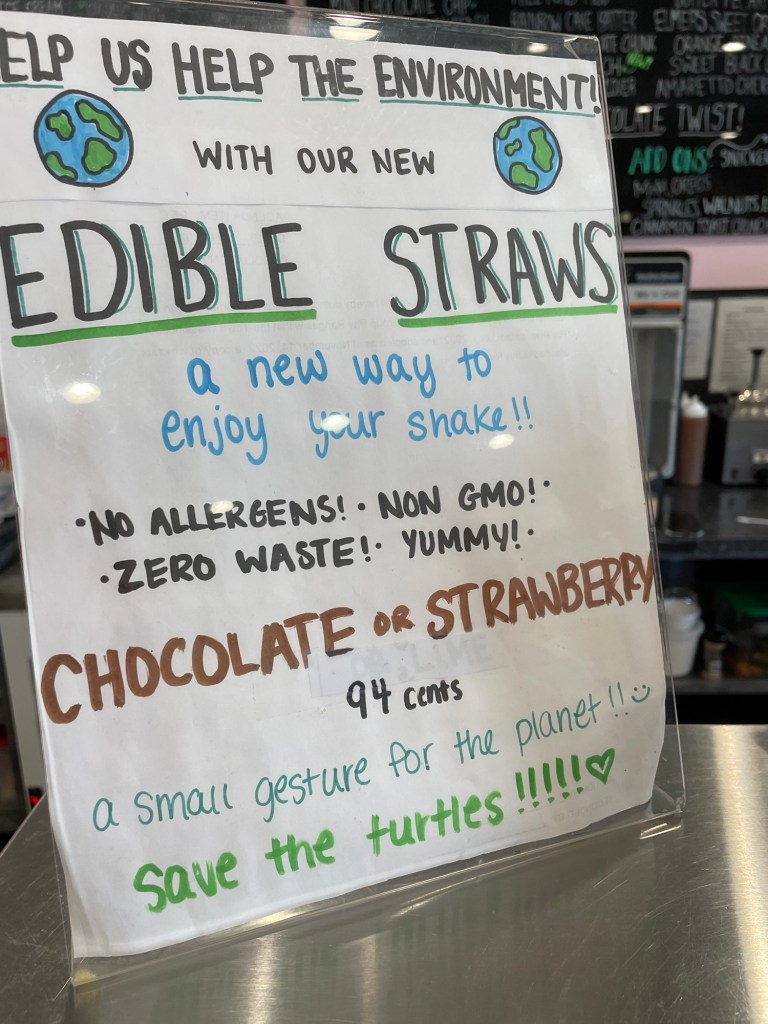 ELP US HELP THE ENVIRONMENT!
WITH OUR NEW
EDIBLE STRAWS
a new way to
enjoy your shake!!
·NO ALLERGENS!· NON GMO!·
·ZERO WASTE!· YUMMY!·
CHOCOLATE OR STRAWBERRY
OR LIME
94 cents
a small gesture for the planet!!
save the turtles!!!!!
ELMERS SWEET
ORANGE
SWEET BLACK
AMARETTO
TWIST!
ADD ONS
WALNUTS
CINNAMON TOAST CRUNCH